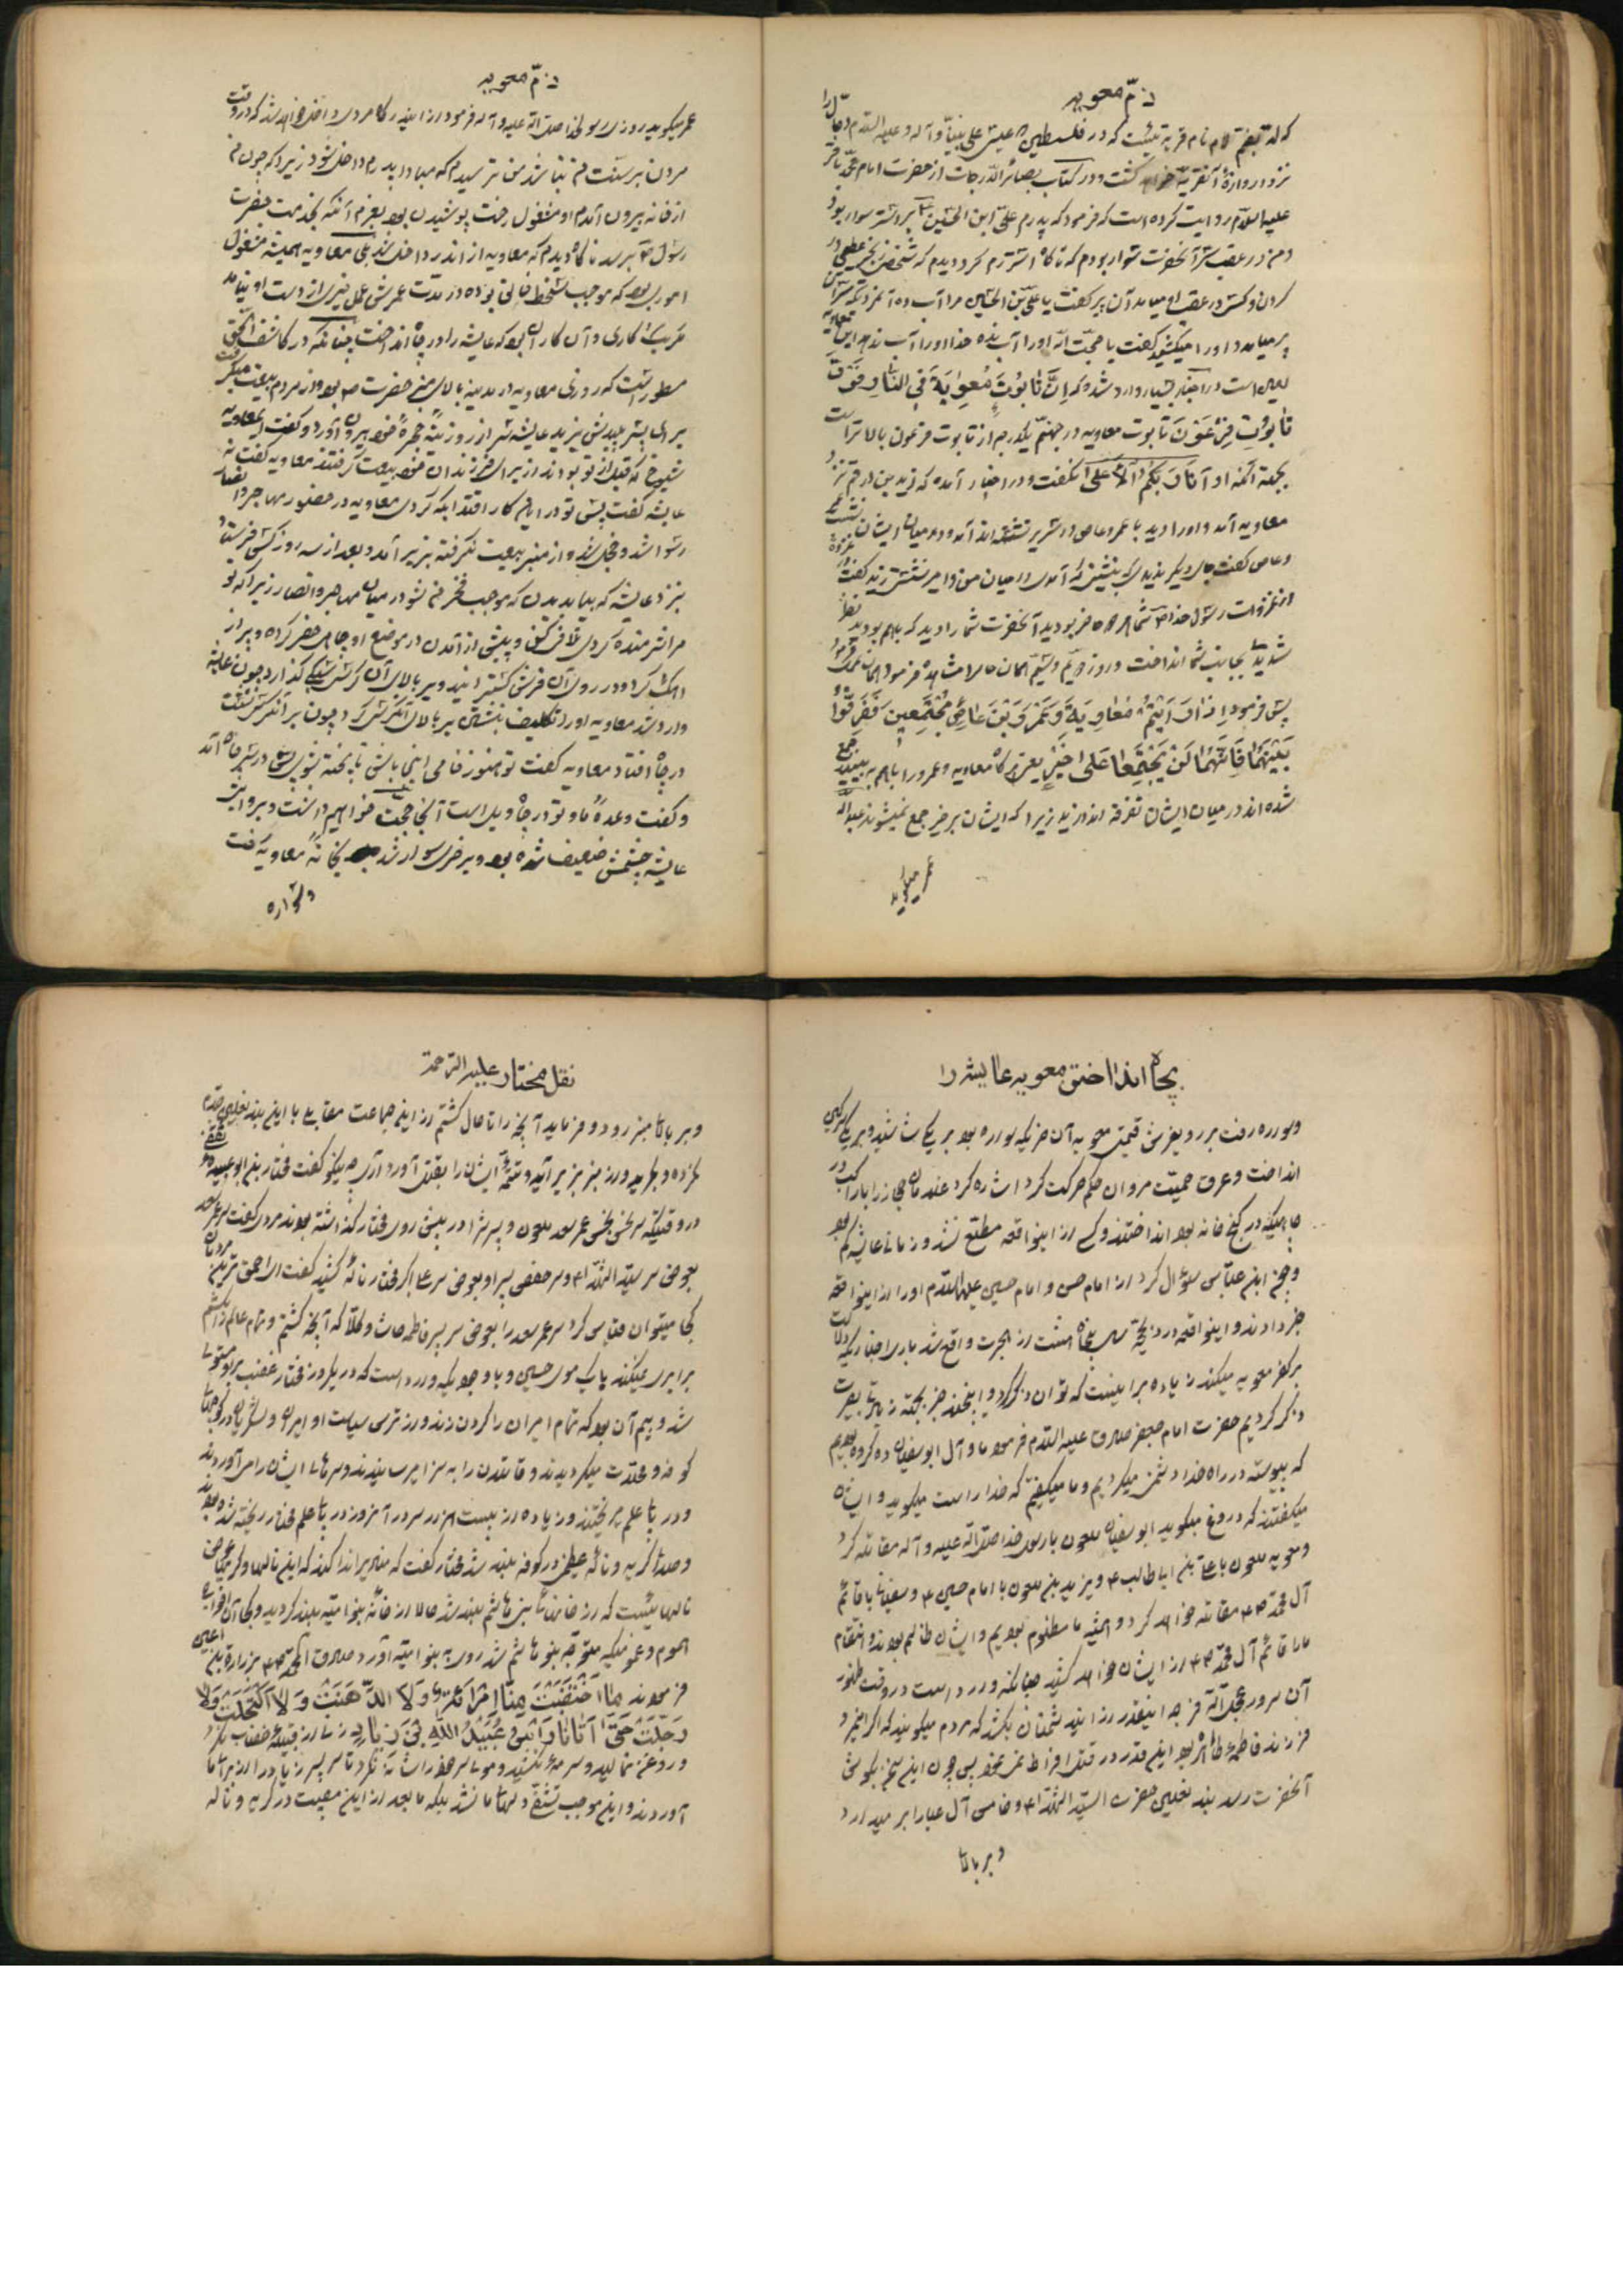 ذمّ معویه
که لد بضم لام نام قریه ایست که در فلسطین عیسی علی نبینا و آله و علیه السلام دجال را
نزد دروازهٔ آنقریه خواهد کشت و در کتاب بصائر الدرجات از حضرت امام محمد باقر
علیه السلام روایت کرده است که فرمود که پدرم علی ابن الحسین بر استر سوار بود
و من در عقب سر آنحضرت سوار بودم که ناگاه استر رم کرد دیدم که شخصی زنجیر عظیمی در
گردن و کسی در عقب او میامد آن پیر گفت یا علی بن الحسین مرا آب ده آنمرد که
پیر میامد و او را میکشید گفت یا حجت الله او را آب نده خدا او را آب ندهد این معاویه
لعین است و در اخبار بسیار وارد شده که اِنَّ تابُوتَ مُعوِیَةَ فِی النّارِ فَوقَ
تابُوتِ فِرعَونَ تابوت معاویه در جهنم یکدرجه از تابوت فرعون بالاتر است
بجهة آنکه او اَنَا رَبُّکُمُ الاَعلی نگفت و در اخبار آمده که زید بن ارقم نزد
معاویه آمد و او را دید با عمرو عاص در سریر نشسته اند آمد و در میان ایشان نشست عمرو
و عاص گفت جای دیگر ندیدی که بنشینی که آمدی در میان من و امیر نشستی زید گفت در غزوه
از غزوات رسول خدا ص شما همراه حضرت بودید آنحضرت شما را دید که باهم بودید نظر
شدید بجانب شما انداخت و روز دویم و سیم همان ملامت شد فرمود
پس فرمود اِذا رَاَیتُم مُعاوِیَةَ وَ عَمرَو بنَ عاصٍ مُجتَمِعینَ فَفَرِّقُوا
بَینَهُما فَاِنَّهُما لَن یَجتَمِعا عَلی خَیرٍ یعنی هرگاه معاویه و عمرو را باهم به بینید جمع
شده اند در میان ایشان تفرقه اندازید زیرا که ایشان بر خیر جمع نمیشوند عبدالله
عمر میگوید
ذمّ معویه
عمر میگوید روزی رسولخدا صلی الله علیه و آله فرمود از این در گاه مردی داخل خواهد شد که در وقت
مردن بر سنت من نباشد من ترسیدم که مبادا پدرم داخل شود زیرا که چون من
از خانه بیرون آمدم او مشغول رخت پوشیدن بود بعزم آنکه بخدمت حضرت
رسول ص برسد ناگاه دیدم که معاویه از اندر داخل شد بلی معاویه همیشه مشغول
اموری بود که موجب سخط خالق بوده در مدت عمرش عمل خیری از دست او نیامد
مگر یک کاری و آن کار این بود که عایشه را در چاه انداخت چنانکه در کاشف الحق
مسطور است که روزی معاویه در مدینه بالای منبر حضرت ص بود و از مردم بیعت میگرفت
برای پسر پلیدش یزید عایشه سر از روزنهٔ حجرهٔ خود بیرون آورد و گفت ای معاویه
شیوخ که قبل از تو بودند از برای فرزندان خود بیعت گرفتند معاویه گفت نه
عایشه گفت پس تو در این کار اقتدا بکه کردی معاویه در حضور مهاجر و انصار
رسوا شد و خجل شد و از منبر بیعت نگرفته بزیر آمد و بعد از سه روز کس فرستاد
بنزد عایشه که بیا بدیدن که موجب فخر من شود در میان مهاجر و انصار زیرا که تو
مرا شرمنده کردی تلافی کنی و پیش از آمدن در موضع او چاهی حفر کرده و پر از
آهک کرده و در روی آن فرش کسترانید و بر بالای آن کرسی گذارد چون عایشه
وارد شد معاویه او را تکلیف بنشستن بر بالای آن کرسی کرد چون بر آنکرسی نشست
در چاه افتاد معاویه گفت تو هنوز خامی اینجا باش تا پخته شوی پس در سر چاه آمد
و گفت وعدهٔ ما و تو در چاه ویل است آنجا حجت خواهیم داشت و بروایتی
عایشه چشمش ضعیف شده بود و بر خری سوار شد بخانهٔ معاویه رفت
و سواره
بچاه انداختن معویه عایشه را
و سواره رفت بر روی فرش قیمتی معویه آن خر یکه سواره بود بر یکی شاشید و بر یکی سرگین
انداخت و عرق حمیت مروان حکم حرکت کرد اشاره کرد غلامان حجاز را با راکب در
چاهیکه در کنج خانه بود انداختند و کسی از اینواقعه مطلع نشد و زمانی عایشه گم بود
و چون ابن عباس سؤال کرد از امام حسن و امام حسین علیهما السلام او را از اینواقعه
خبر دادند و اینواقعه در ذیحجه سال پنجاه هشت از هجرت واقع شد
بر کفر معویه میکند زیاده بر اینست که توان ذکر کرد و اینچند خبر بجهة زیارتی بصیرت
ذکر کردیم حضرت امام جعفر صادق علیه السلام فرمود ما و آل ابوسفیان دو گروه بودیم
که پیوسته در راه خدا دشمنی میکردیم و ما میگفتیم که خدا راست میگوید و ایشان
میگفتند که دروغ میگوید ابوسفیان ملعون با رسول خدا صلی الله علیه و آله مقاتله کرد
و معویه ملعون با علی بن ابیطالب ع و یزید بن ملعون با امام حسین ع و سفیانی با قائم
آل محمد ص مقاتله خواهد کرد و همیشه ما مظلوم بودیم و ایشان ظالم بودند و انتقام
ما را قائم آل محمد ص از ایشان خواهد کشید چنانکه وارد است در وقت ظهور
آن سرور عجل الله فرجه اینقدر از این دشمنان بکشد که مردم میگویند که اگر این مرد
فرزند فاطمهٔ طاهره بود این قدر در قتل افراط نمینمود پس چون این سخن بگوش
آنحضرت رسد بند نعلین حضرت السید الشهداء و خامس آل عبا را برمیدارد
و بر بالای
نقل مختار علیه الرحمة
و بر بالای منبر رود و فرماید آنچه را تا حال کشتم از این جماعت مقابلی با این بند نعلین جدم
نکرده و بگرید و از منبر بزیر آید و تتمه ایشان را بقتل آورد آری چه نیکو گفت مختار بن ابو عبیده ثقفی
در وقتیکه سر نحس نجس عمر سعد ملعون و پسرش را در پیش روی مختار گذاشته بودند مردی گفت سر عمر سعد
بعوض سر سید الشهداء و سر حفص پسر او بعوض سر علی اکبر مختار نالهٔ کشید گفت ای احمق ترین مردمان
کجا میتوان قیاس کرد سر عمر سعد را بعوض سر پسر فاطمه حاشا و کلا که آنچه کشتم و تمام عالم را بکشم
برابری نمیکند بایک موی حسین و باوجودیکه وارد است که در یکروز مختار غضب بر او مستولی
شد و بیم آن بود که تمام اسیران را گردن زند و از ترس سیاست او امیران و لشگریان در کوچهای
کوفه و محلات میگردیدند و قاتلان را به سزا میرسانیدند و سرهای ایشان را می آوردند
و در پای علم میریختند و زیاده از بیست هزار سر در آنروز در پای علم مختار ریخته شده بود
و صدای گریه و نالهٔ عظیمی در کوفه بلند شد مختار گفت که منادی اندا کند که این نالها و گریها عوض
نالهائیست که از خانهای بنی هاشم بلند شد حالا از خانهٔ بنو امیه بلند گردید و بجای آن افواج
هموم و غمومیکه متوجه بنو هاشم شد روی به بنو امیه آورد صادق آل محمد ص بزرارة بن اعین
فرمودند ما اختَضَبَت مِنّا اِمرَأَةٌ وَ لا ادَّهَنَت وَ لا اکتَحَلَت وَ لا
رَجَّلَت حَتّی اَتانا رَأسُ عُبَیدِ اللهِ بنِ زِیادٍ زنی از قبیلهٔ خضاب نکرد
و روغن نمالید و سرمه نکشید و موی سر خود را شانه نکرد تا سر پسر زیاد را از برای ما
آوردند و این موجب تشفی دلهای ما نشد بلکه ما بعد از این مصیبت در گریه و ناله